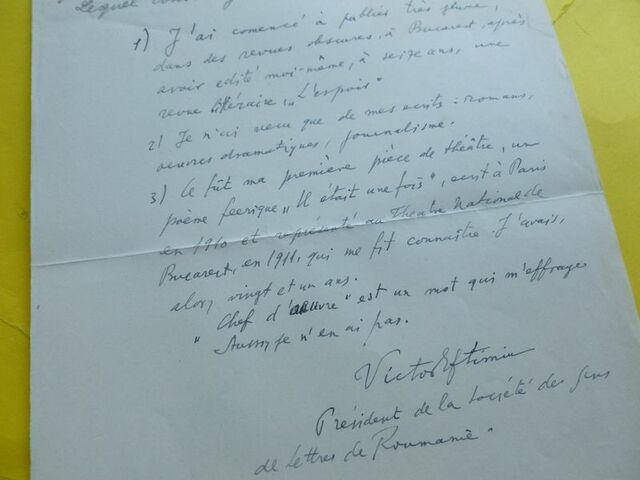 Lequel
1) J'ai comencé à publier très jeune,
dans des revues obscures, à Bucarest, après
avoir edité moi-même, à seize ans, une
revue littéraire, „L'espoir"
2) Je n'ai vecu que de mes ecrits: romans,
oeuvres dramatiques, journalisme.
3) Ce fût ma première pièce de théâtre, un
poème feerique „Il était une fois", ecrit à Paris
en 1910 et représenté au Theatre National de
Bucarest, en 1911, qui me fit connaître. J'avais,
alors, vingt et un ans.
„Chef d'œuvre" est un mot qui m'effraye
Aussi je n'en ai pas.
Victor Eftimiu
Président de la Société des Gens
de Lettres de Roumanie"